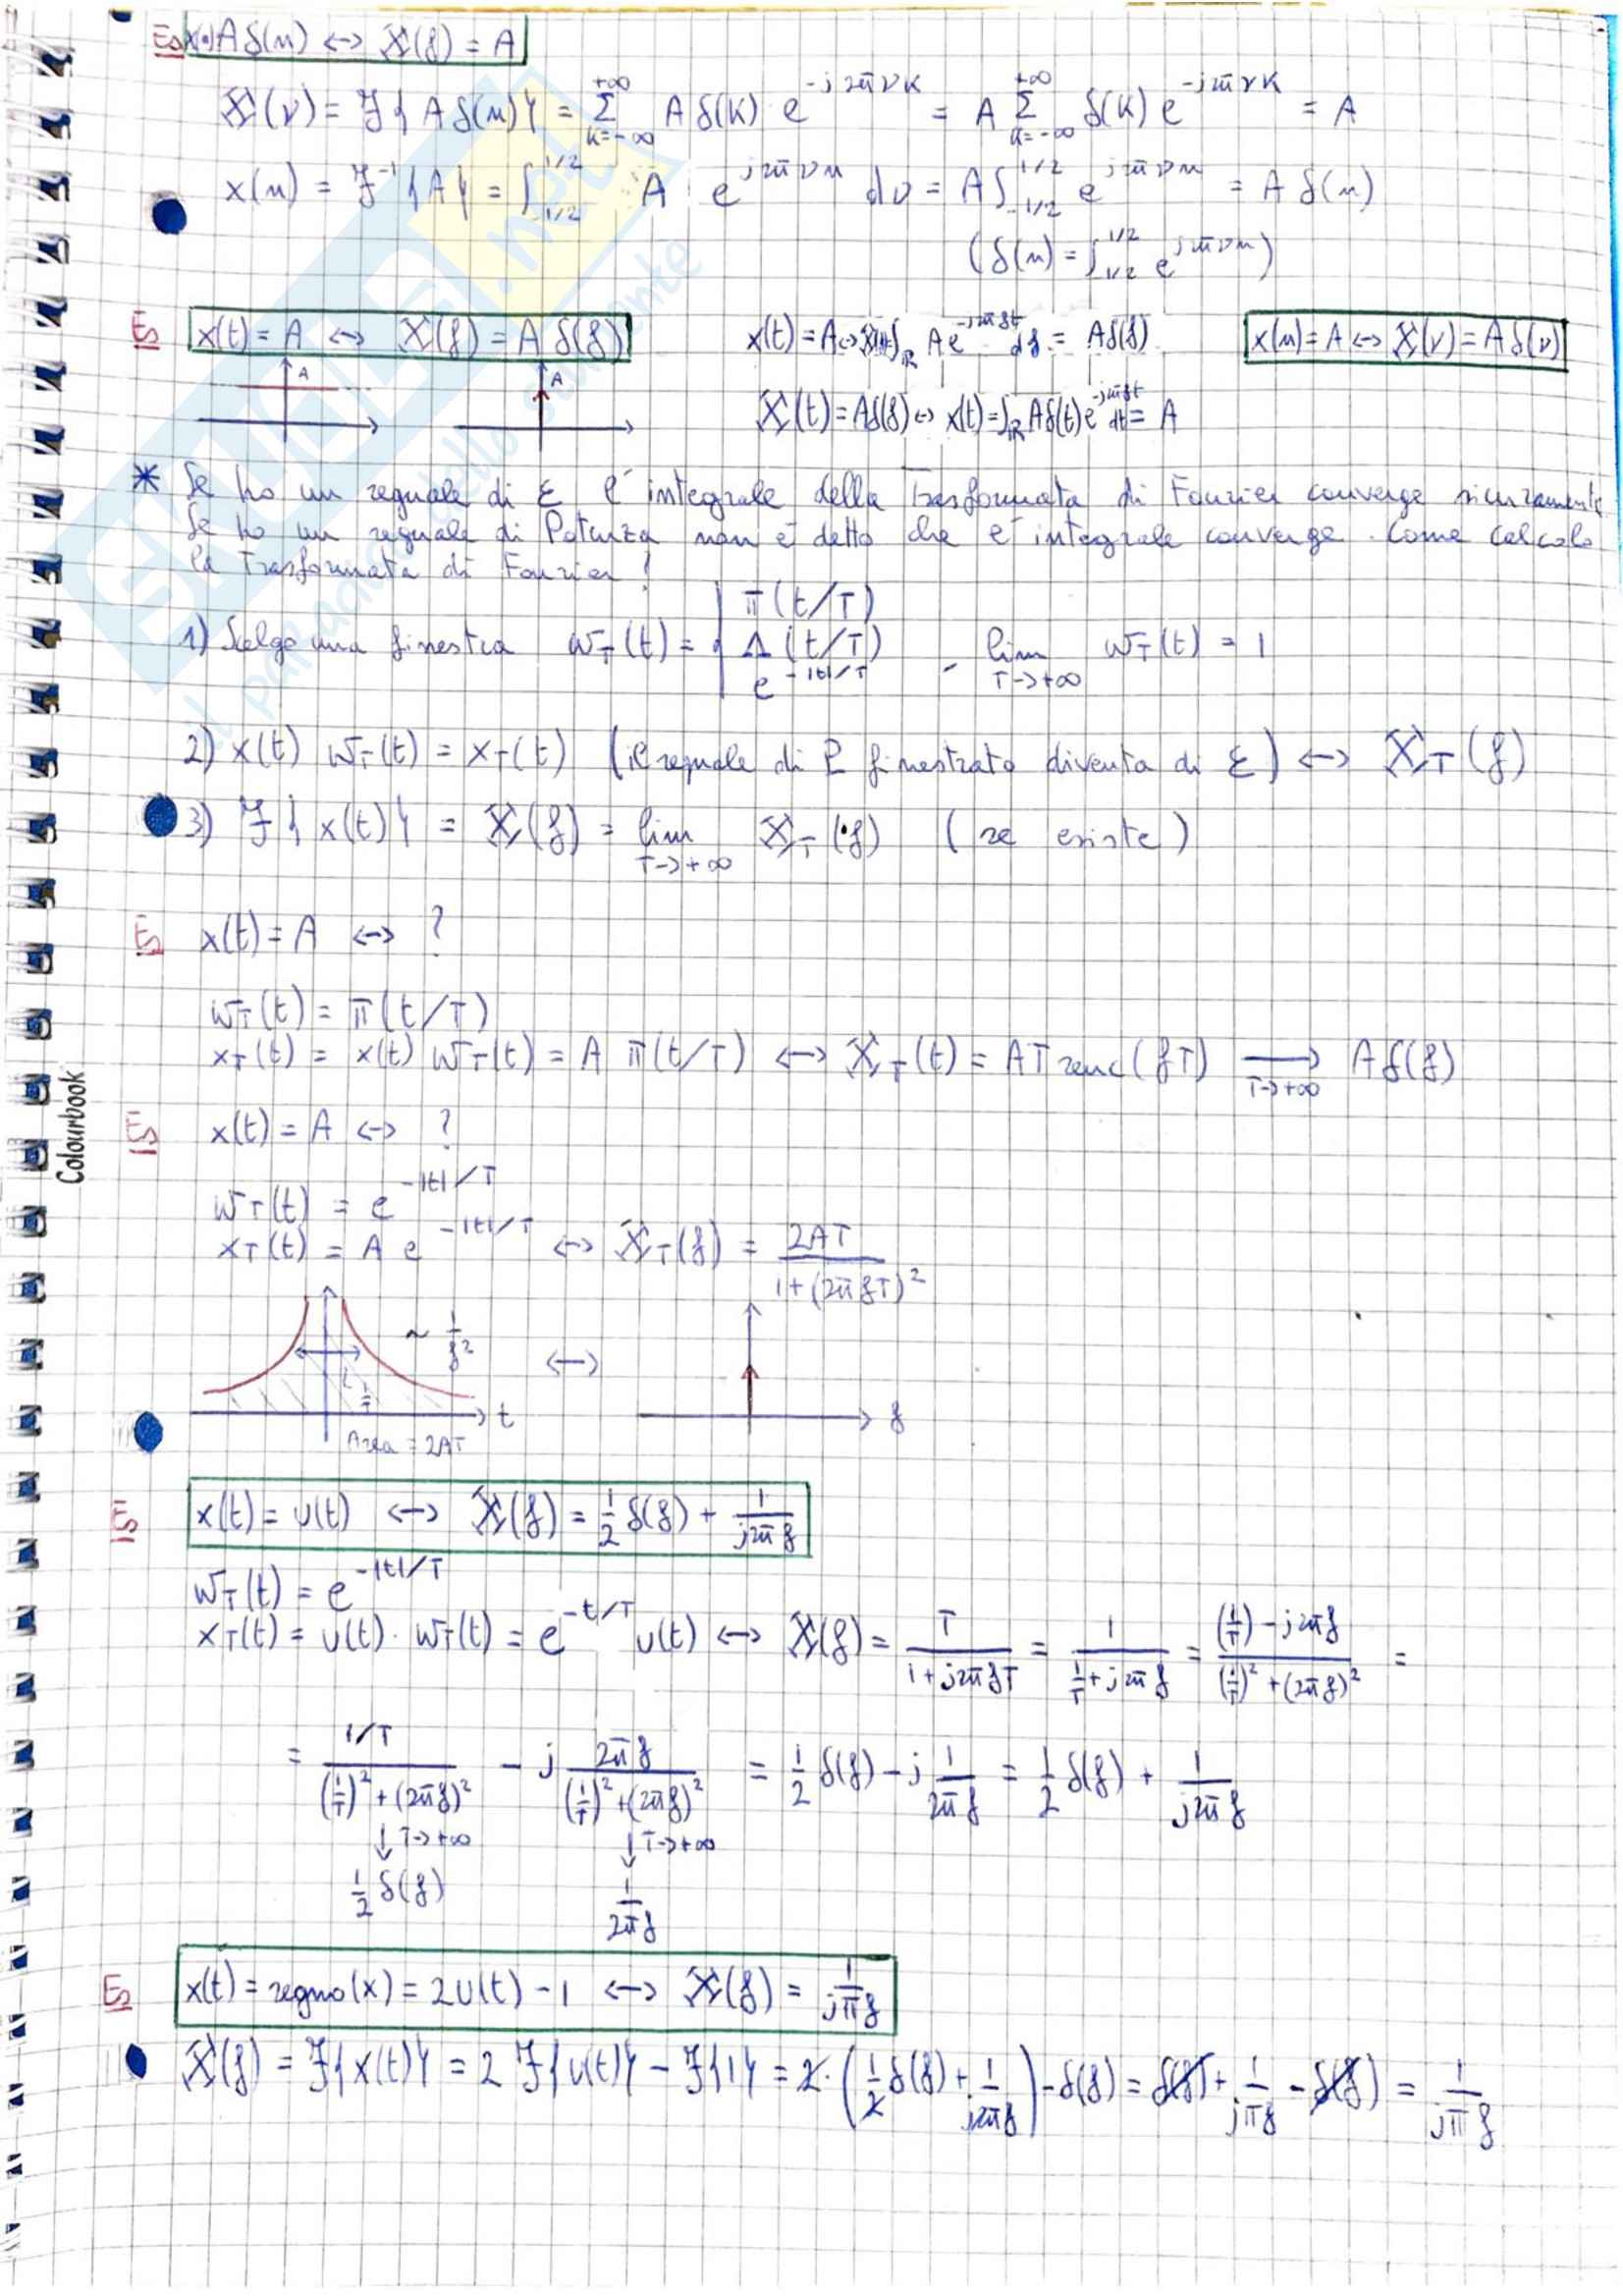 Es x(n)=Aδ(n) ↔ X(f) = A
X(ν) = F{Aδ(n)} = Σ_{k=-∞}^{+∞} Aδ(k) · e^{-j2πνk} = A Σ_{k=-∞}^{+∞} δ(k) e^{-j2πνk} = A
x(n) = F^{-1}{A} = ∫_{-1/2}^{1/2} A · e^{j2πνn} dν = A∫_{-1/2}^{1/2} e^{j2πνn} = A δ(n)
(δ(n) = ∫_{1/2}^{1/2} e^{j2πνn})
Es x(t) = A ↔ X(f) = A δ(f)
x(t) = A ↔ ∫_ℝ A e^{-j2πft} df = Aδ(f)
x(n) = A ↔ X(ν) = A δ(ν)
A
A
X(t) = Aδ(f) ↔ x(t) = ∫_ℝ Aδ(t) e^{-j2πft} dt = A
* Se ho un segnale di ε l'integrale della Trasformata di Fourier converge sicuramente
Se ho un segnale di Potenza non è detto che l'integrale converge. Come calcolo
la Trasformata di Fourier?
1) Scelgo una finestra w_T(t) = { π(t/T)
Λ(t/T) , lim_{T→+∞} w_T(t) = 1
e^{-|t|/T}
2) x(t) w_T(t) = x_T(t) (il segnale di P finestrato diventa di ε) ↔ X_T(f)
3) F{x(t)} = X(f) = lim_{T→+∞} X_T(f) (se esiste)
Es x(t) = A ↔ ?
w_T(t) = π(t/T)
x_T(t) = x(t) w_T(t) = A π(t/T) ↔ X_T(t) = AT senc(fT) →_{T→+∞} Aδ(f)
Es x(t) = A ↔ ?
w_T(t) = e^{-|t|/T}
x_T(t) = A e^{-|t|/T} ↔ X_T(f) = 2AT / (1+(2πfT)^2)
~ 1/f^2 ↔
t
f
Area = 2AT
Es x(t) = u(t) ↔ X(f) = 1/2 δ(f) + 1/(j2πf)
w_T(t) = e^{-|t|/T}
x_T(t) = u(t) · w_T(t) = e^{-t/T} u(t) ↔ X(f) = T/(1+j2πfT) = 1/(1/T + j2πf) = ((1/T) - j2πf)/((1/T)^2 + (2πf)^2) =
= (1/T)/((1/T)^2 + (2πf)^2) - j (2πf)/((1/T)^2 + (2πf)^2) = 1/2 δ(f) - j 1/(2πf) = 1/2 δ(f) + 1/(j2πf)
↓ T→+∞ ↓ T→+∞
1/2 δ(f) 1/(2πf)
Es x(t) = segno(x) = 2u(t) - 1 ↔ X(f) = 1/(jπf)
X(f) = F{x(t)} = 2 F{u(t)} - F{1} = 2·(1/2 δ(f) + 1/(j2πf)) - δ(f) = δ(f) + 1/(jπf) - δ(f) = 1/(jπf)
Colourbook